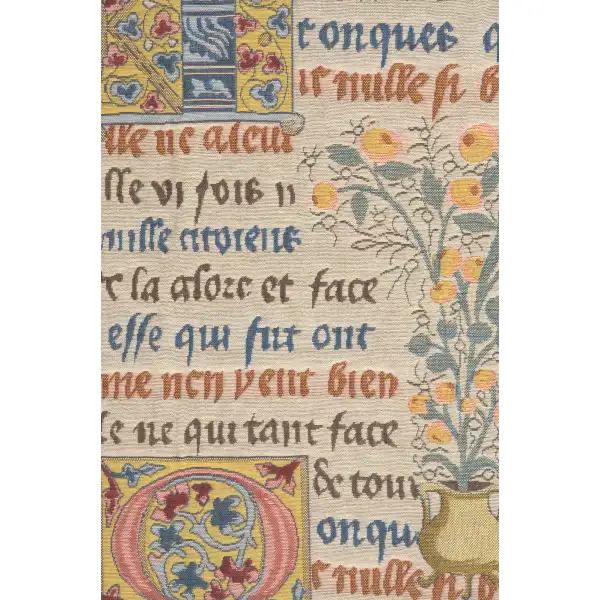 tonques q
ur nulle si b
lle ne aleur
lle vi fois n
mille citoiens
e la alore et face
esse qui fut ont
me nen veut bien
le ne qui tant face
O de tour
onqu
r nulle si b